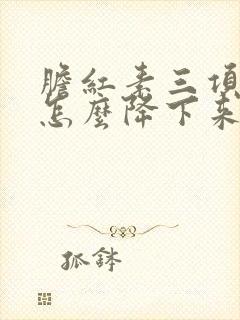 膽紅素三項
怎麼降下來
狐鉢